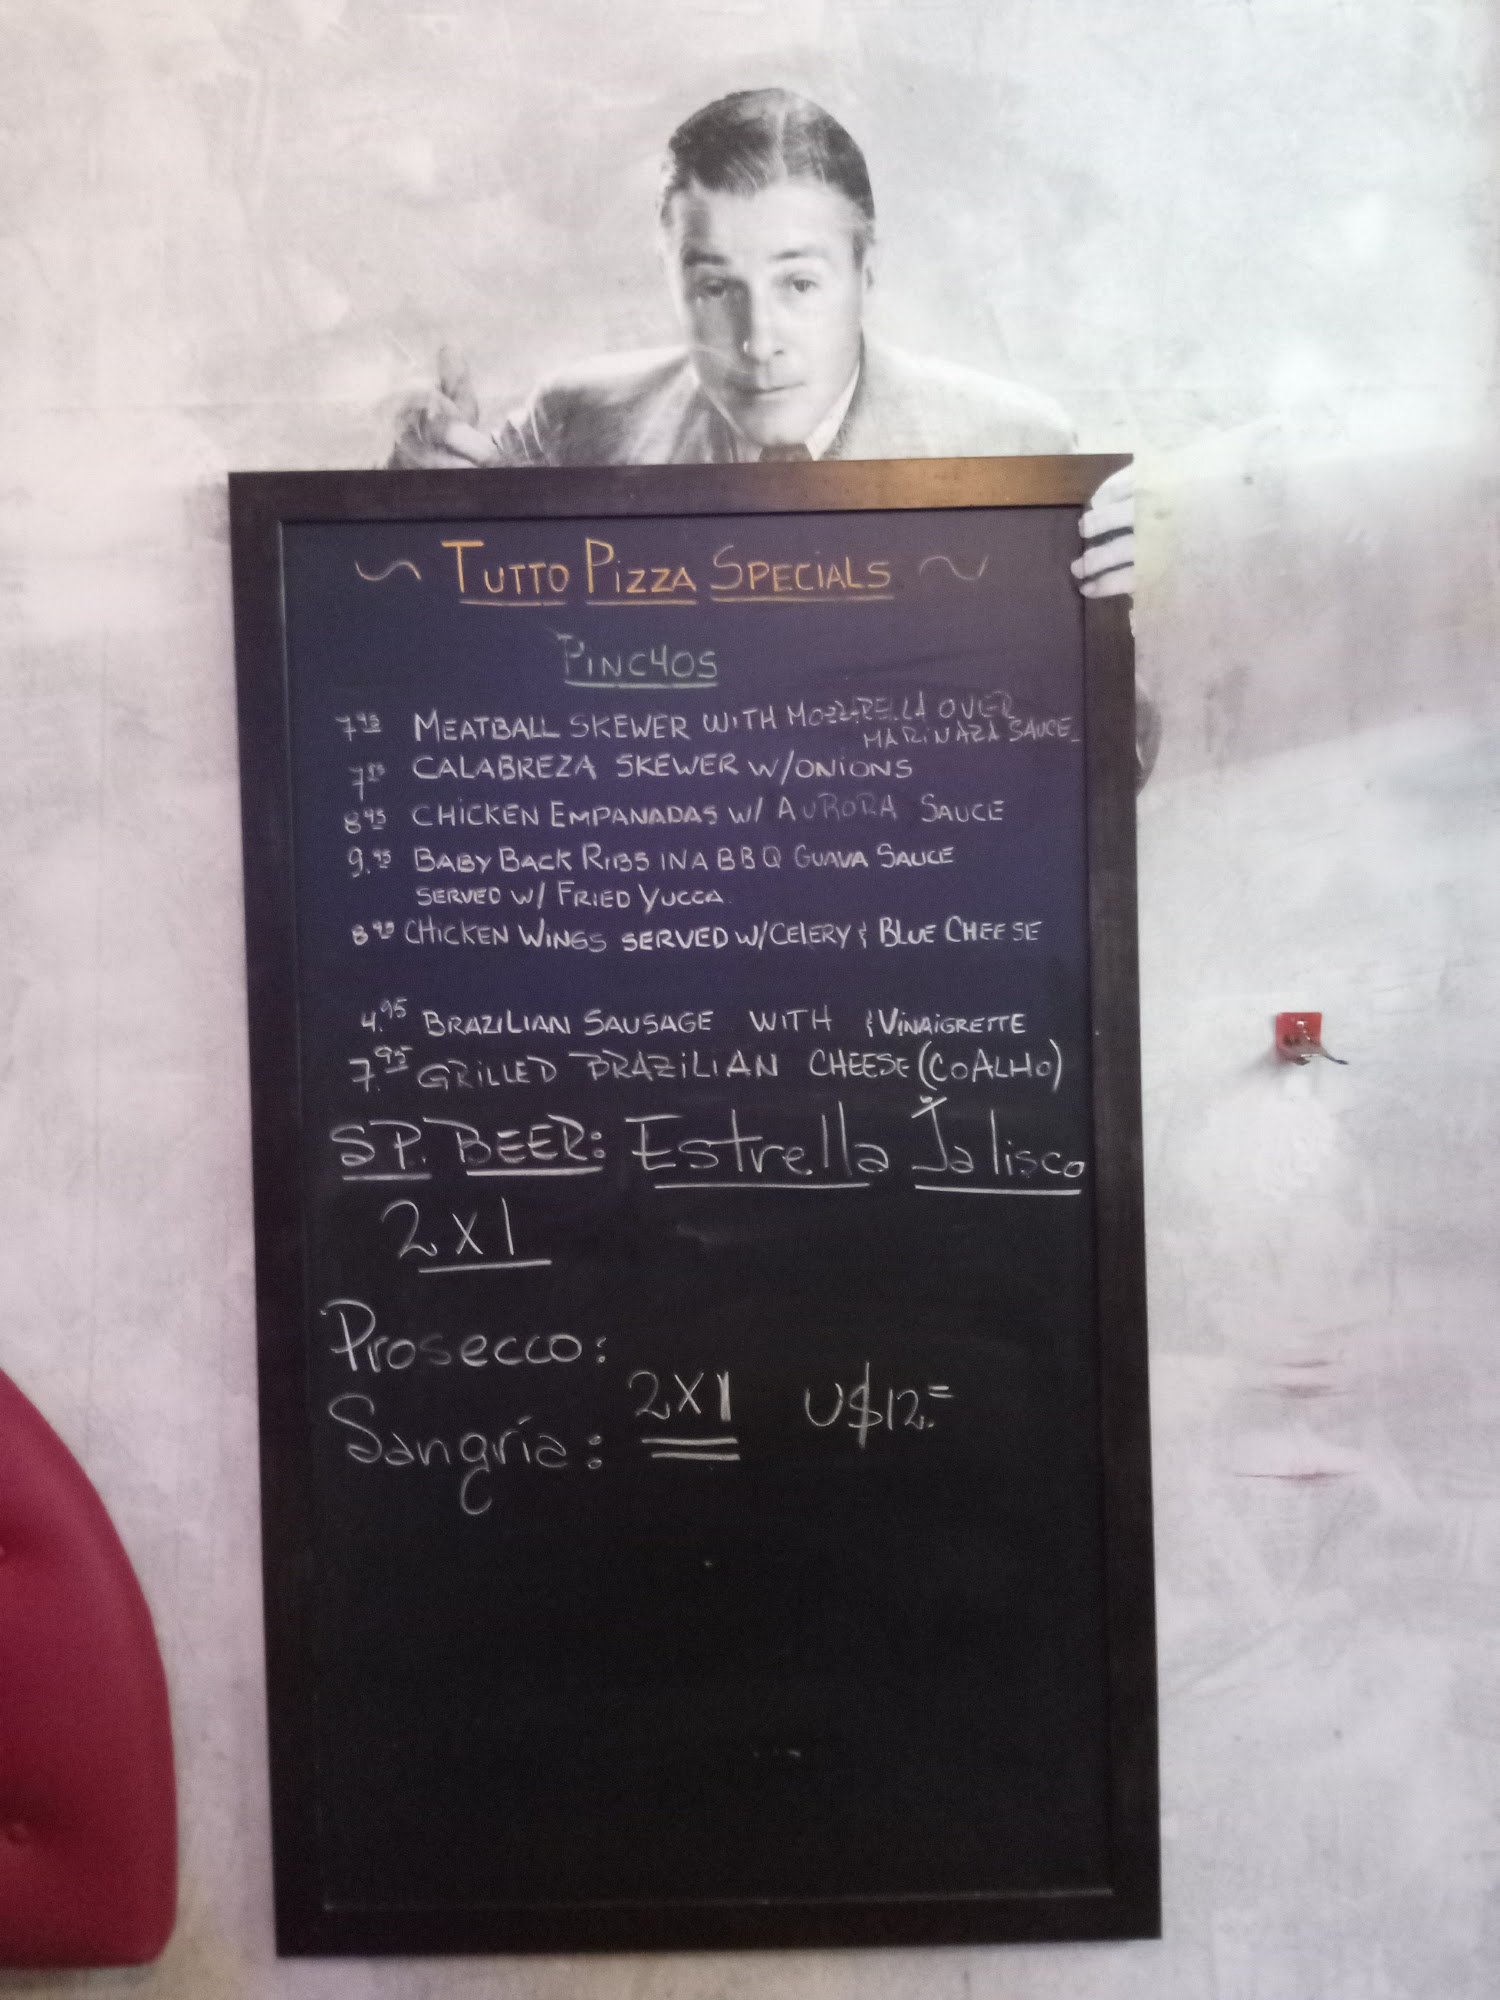 ~ TUTTO PIZZA SPECIALS ~
PINCHOS
7.95 MEATBALL SKEWER WITH MOZZARELLA OVER
MARINAZA SAUCE
7 CALABREZA SKEWER W/ONIONS
8.95 CHICKEN EMPANADAS W/ AURORA SAUCE
9.95 BABY BACK RIBS IN A BBQ GUAVA SAUCE
SERVED W/ FRIED YUCCA.
8 CHICKEN WINGS SERVED W/CELERY & BLUE CHEESE
4.95 BRAZILIAN SAUSAGE WITH & VINAIGRETTE
7.95 GRILLED BRAZILIAN CHEESE (COALHO)
SP. BEER: Estrella Jalisco
2 x 1
Prosecco:
Sangría: 2 X 1 U$12.=